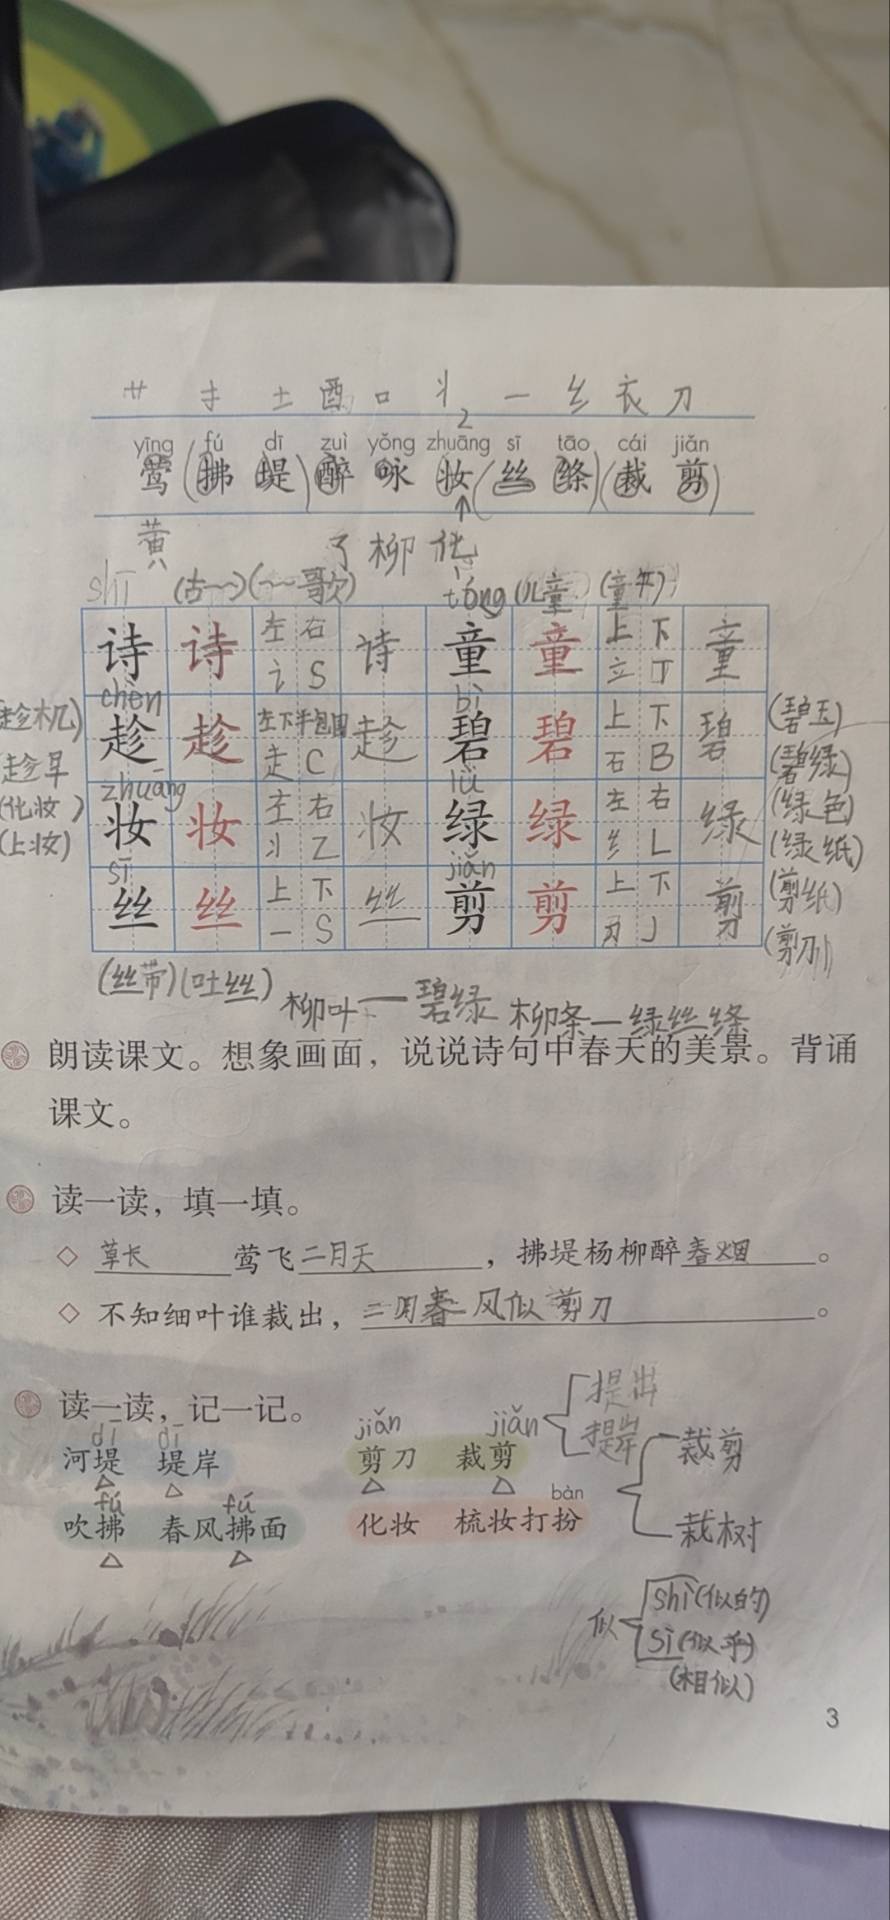 艹 扌 土 酉 口 丬 一 纟 衣 刀
2
yīng fú dī zuì yǒng zhuāng sī tāo cái jiǎn
莺(拂 堤)醉 咏 妆(丝 绦)(裁 剪)
黄 柳 化
shī (古~)(~歌) tóng (儿童) (童年)
诗 诗 左 右 诗 童 童 上 下 童
讠 S 立 T
chèn bì
(趁机) 趁 趁 左下半包围 趁 碧 碧 上 下 碧 (碧玉)
趁早 走 C 石 B (碧绿)
zhuāng lǜ
(化妆) 妆 妆 左 右 妆 绿 绿 左 右 绿 (绿色)
(上妆) 丬 Z 纟 L (绿纸)
sī jiǎn
丝 丝 上 下 丝 剪 剪 上 下 剪 (剪纸)
一 S 刀 J (剪刀)
(丝带)(吐丝) 柳叶—碧绿 柳条—绿丝绦
朗读课文。想象画面，说说诗句中春天的美景。背诵
课文。
读一读，填一填。
◇ 草长莺飞二月天，拂堤杨柳醉春烟。
◇ 不知细叶谁裁出，二月春风似剪刀。
读一读，记一记。
提出
dī dī jiǎn jiǎn 堤岸
河堤 堤岸 剪刀 裁剪 裁剪
fú fú bàn
吹拂 春风拂面 化妆 梳妆打扮 栽树
似 shì(似的)
sì(似乎)
(相似)
3